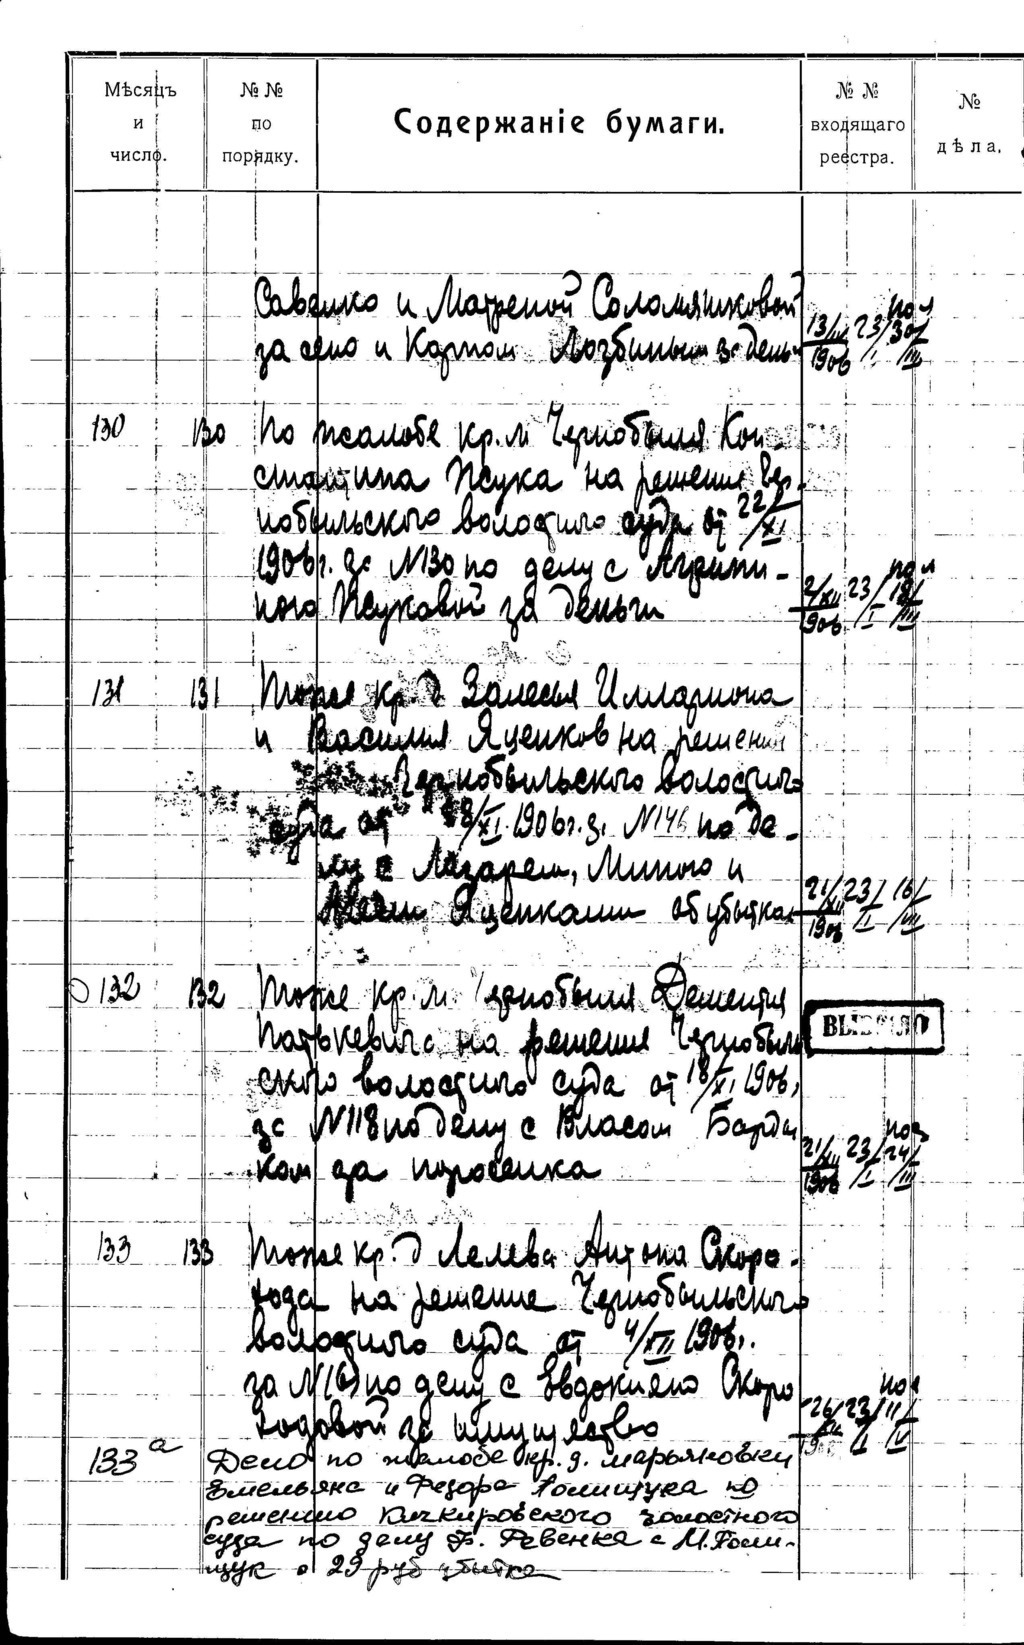 Мѣсяцъ и число.
№ № по порядку.
Содержаніе бумаги.
№ № входящаго реестра.
№ дѣла.
Савенко и Матреной Соломяниковой
за сено и Карпом Лозбиным за деньги
13/III 1906 23/I 30/III
130 130 По жалобе кр. м. Чернобыля Кон-
стантина Жука на решение Чер-
нобыльского волостного суда от 22/XI
1906 г. за № 30 по делу с Агрипи-
ною Жуковой за деньги
2/XII 1906 23/I 18/III
131 131 Тоже кр. д. Залесья Иллариона
и Василия Яценков на решение
Чернобыльского волостного
суда от 28/XI 1906 г. за № 146 по де-
лу с Лазарем, Миною и
Яценками об убытках
21/XII 1906 23/I 16/III
132 132 Тоже кр. м. Чернобыля Дементия
Патькевича на решение Чернобыль
ского волостного суда от 18/XI 1906 г.
за № 118 по делу с Власом Барда
ком за поросенка
ВЫБЫЛО
21/XII 1906 23/I 24/III
133 133 Тоже кр. д. Лелева Антона Скоро-
хода на решение Чернобыльского
волостного суда от 4/XII 1906 г.
за № по делу с Евдокиею Скоро
ходовой за имущество
26/XII 23/I 11/IV
133 а Дело по жалобе кр. д. Марьяновки
Емельяна и Федора Полищука по
решению волостного
суда по делу Ф. Ревенка с М. Поли-
щук о 29 руб убытка